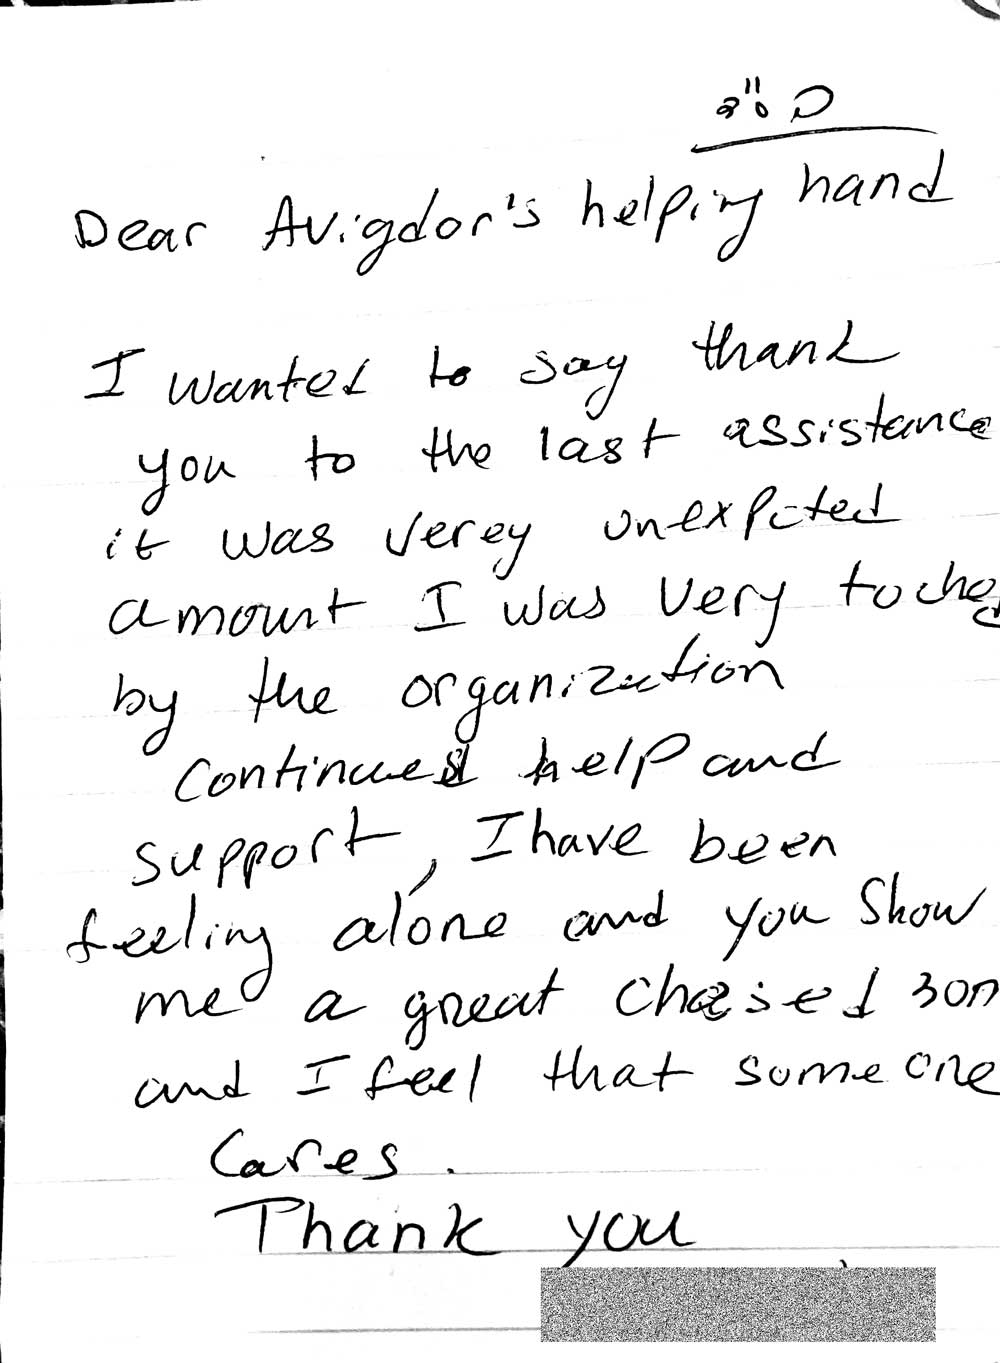 בס"ד
Dear Avigdor's helping hand
I wanted to say thank
you to the last assistance
it was verey unexpcted
amount I was very toched
by the organization
continued help and
support, I have been
feeling alone and you show
me a great chesed
and I feel that someone
cares.
Thank you